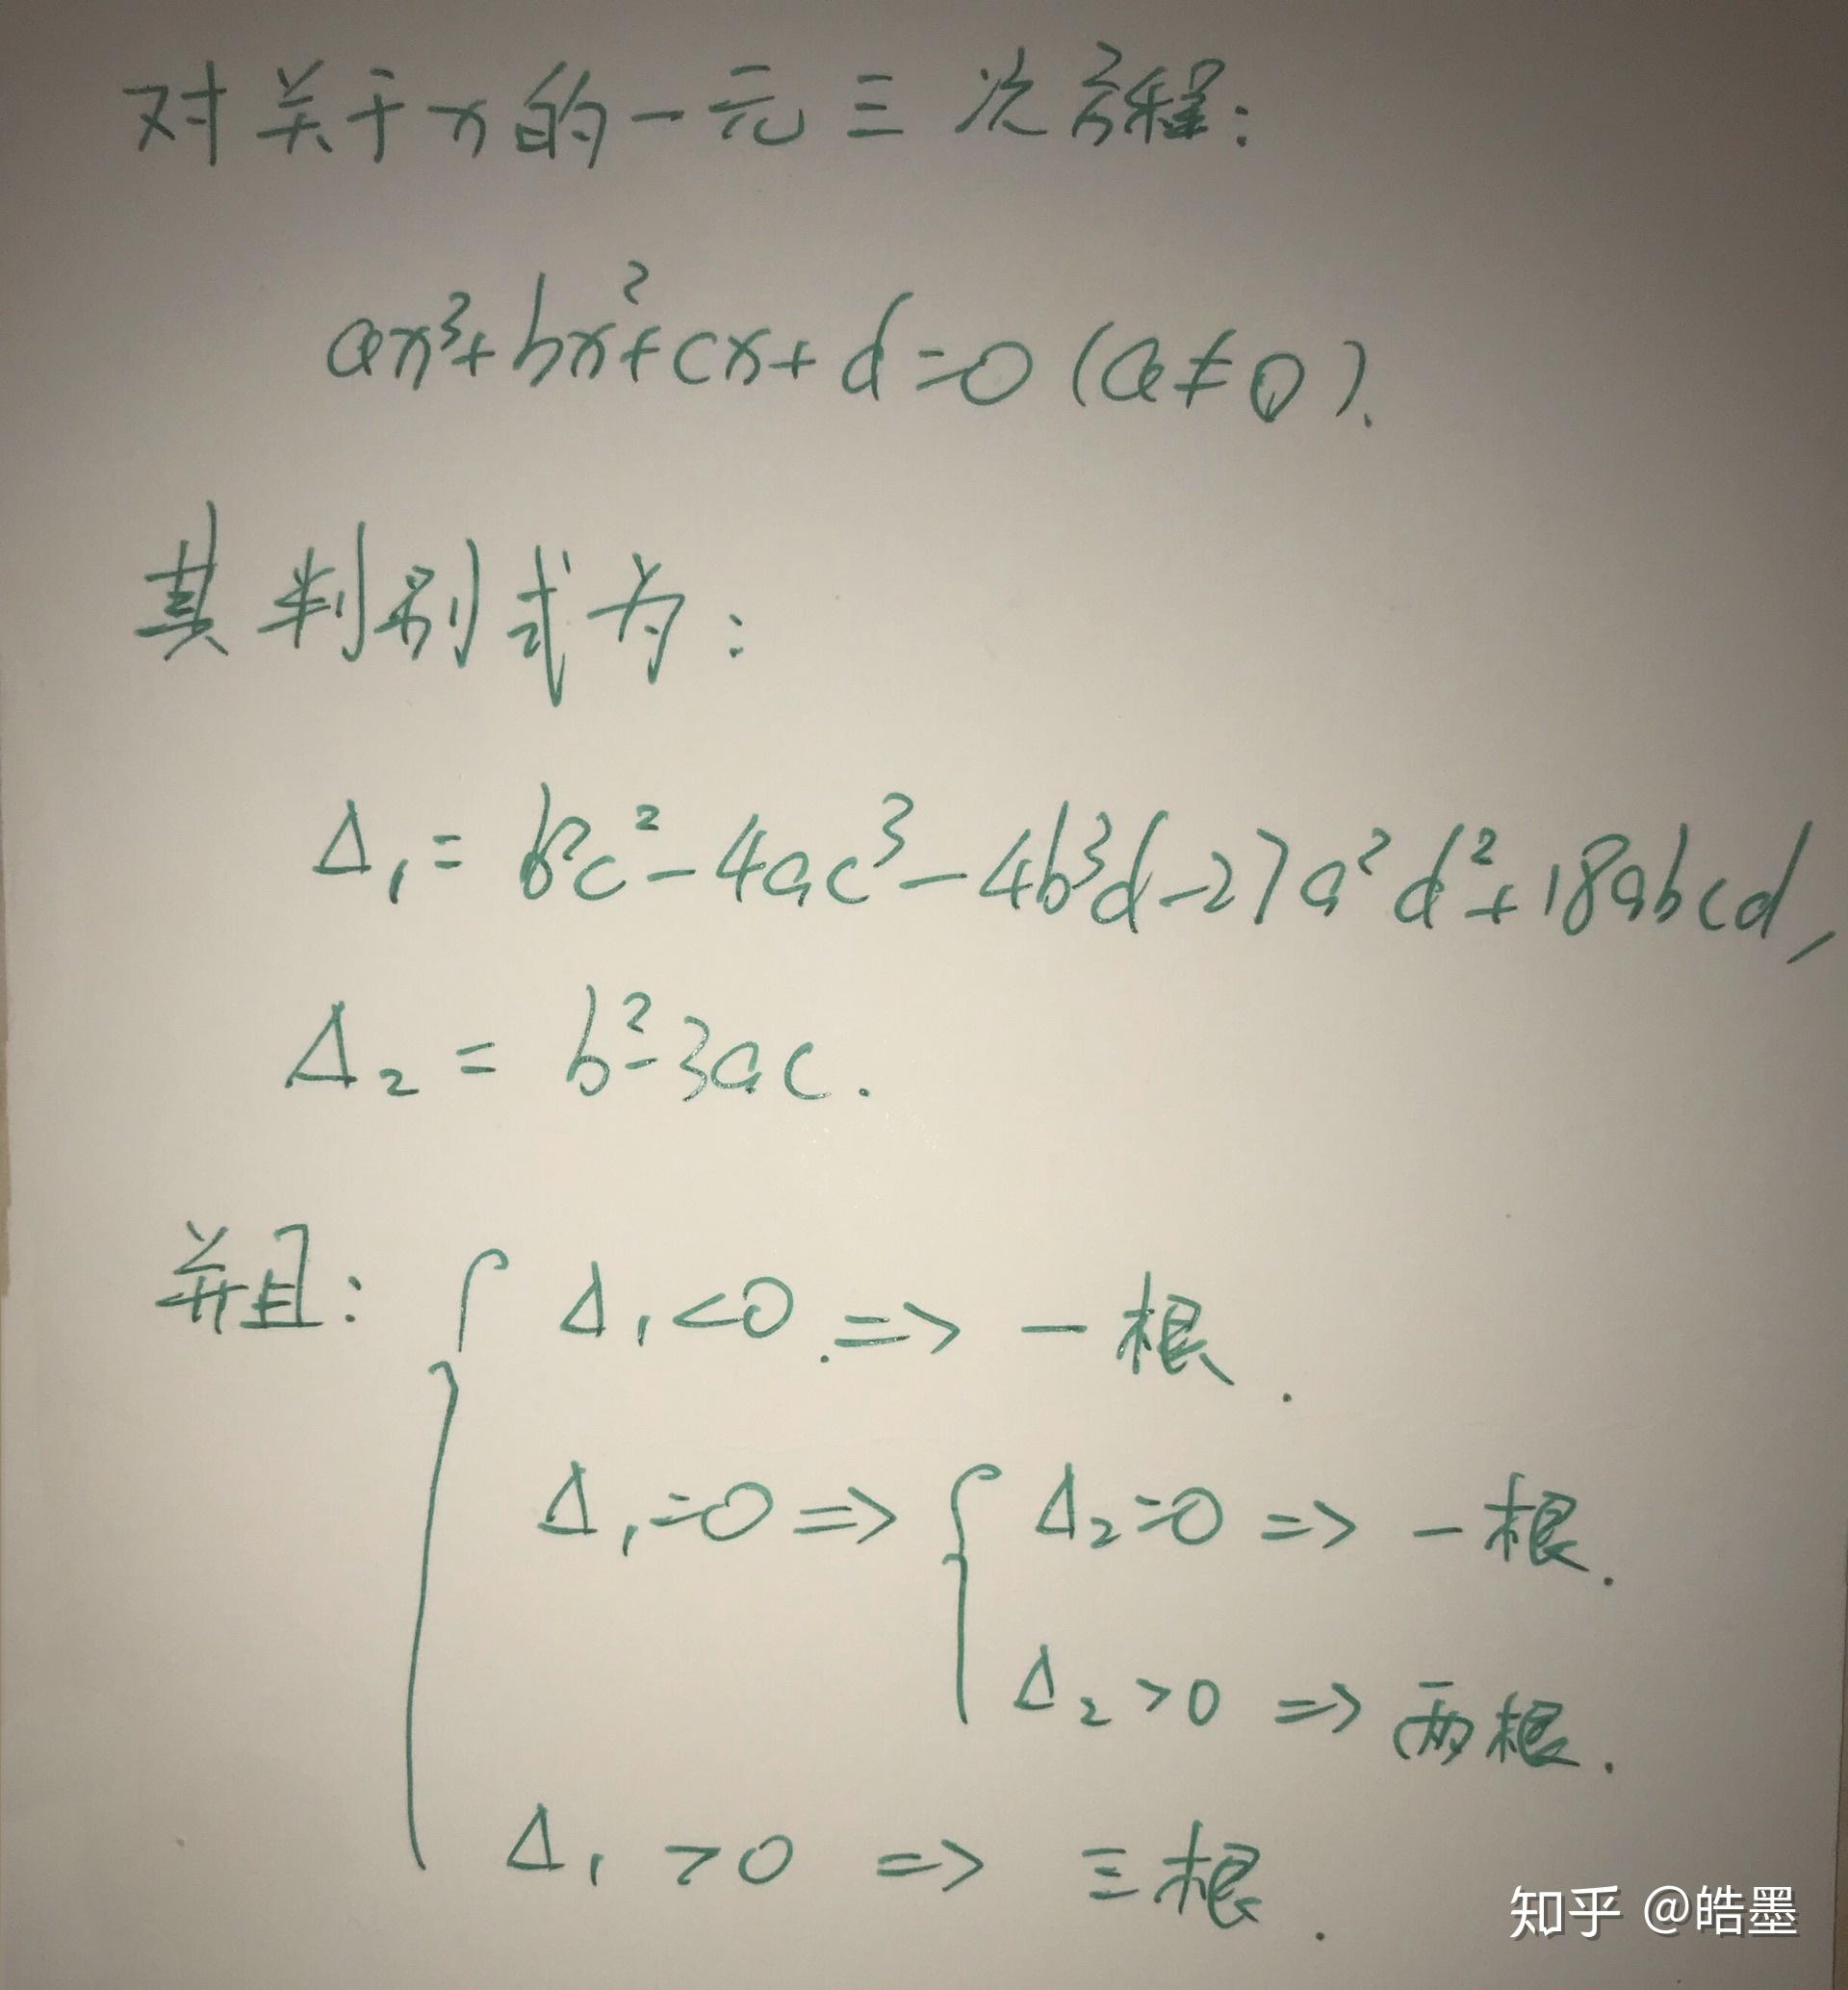 对关于x的一元三次方程:
ax³+bx²+cx+d=0(a≠0).
其判别式为:
Δ₁=b²c²-4ac³-4b³d-27a²d²+18abcd,
Δ₂=b²-3ac.
并且: Δ₁<0.=>一根.
Δ₁=0=>{Δ₂=0=>一根.
Δ₂>0=>两根.
Δ₁>0=>三根.
知乎 @皓墨